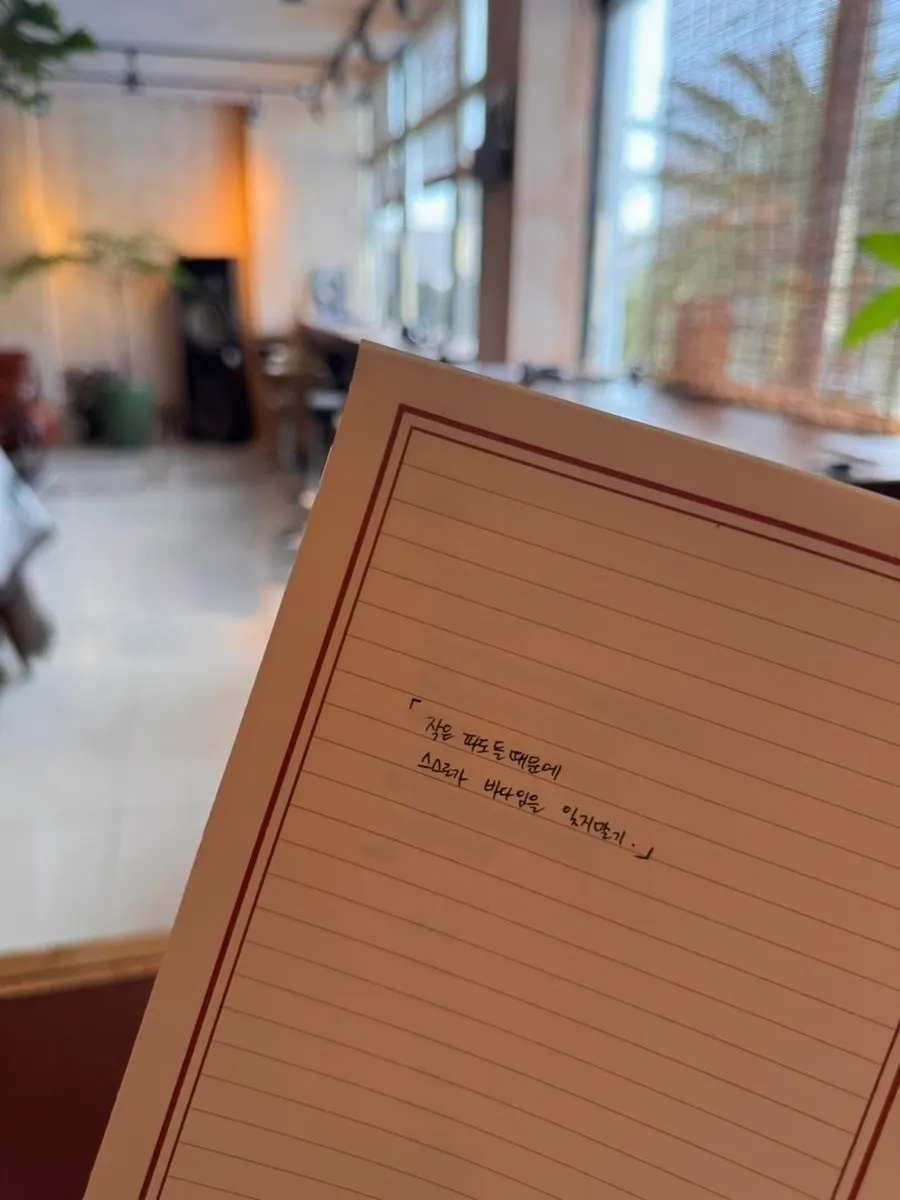 「작은 파도들때문에
스스로가 바다임을 잊지말기.」